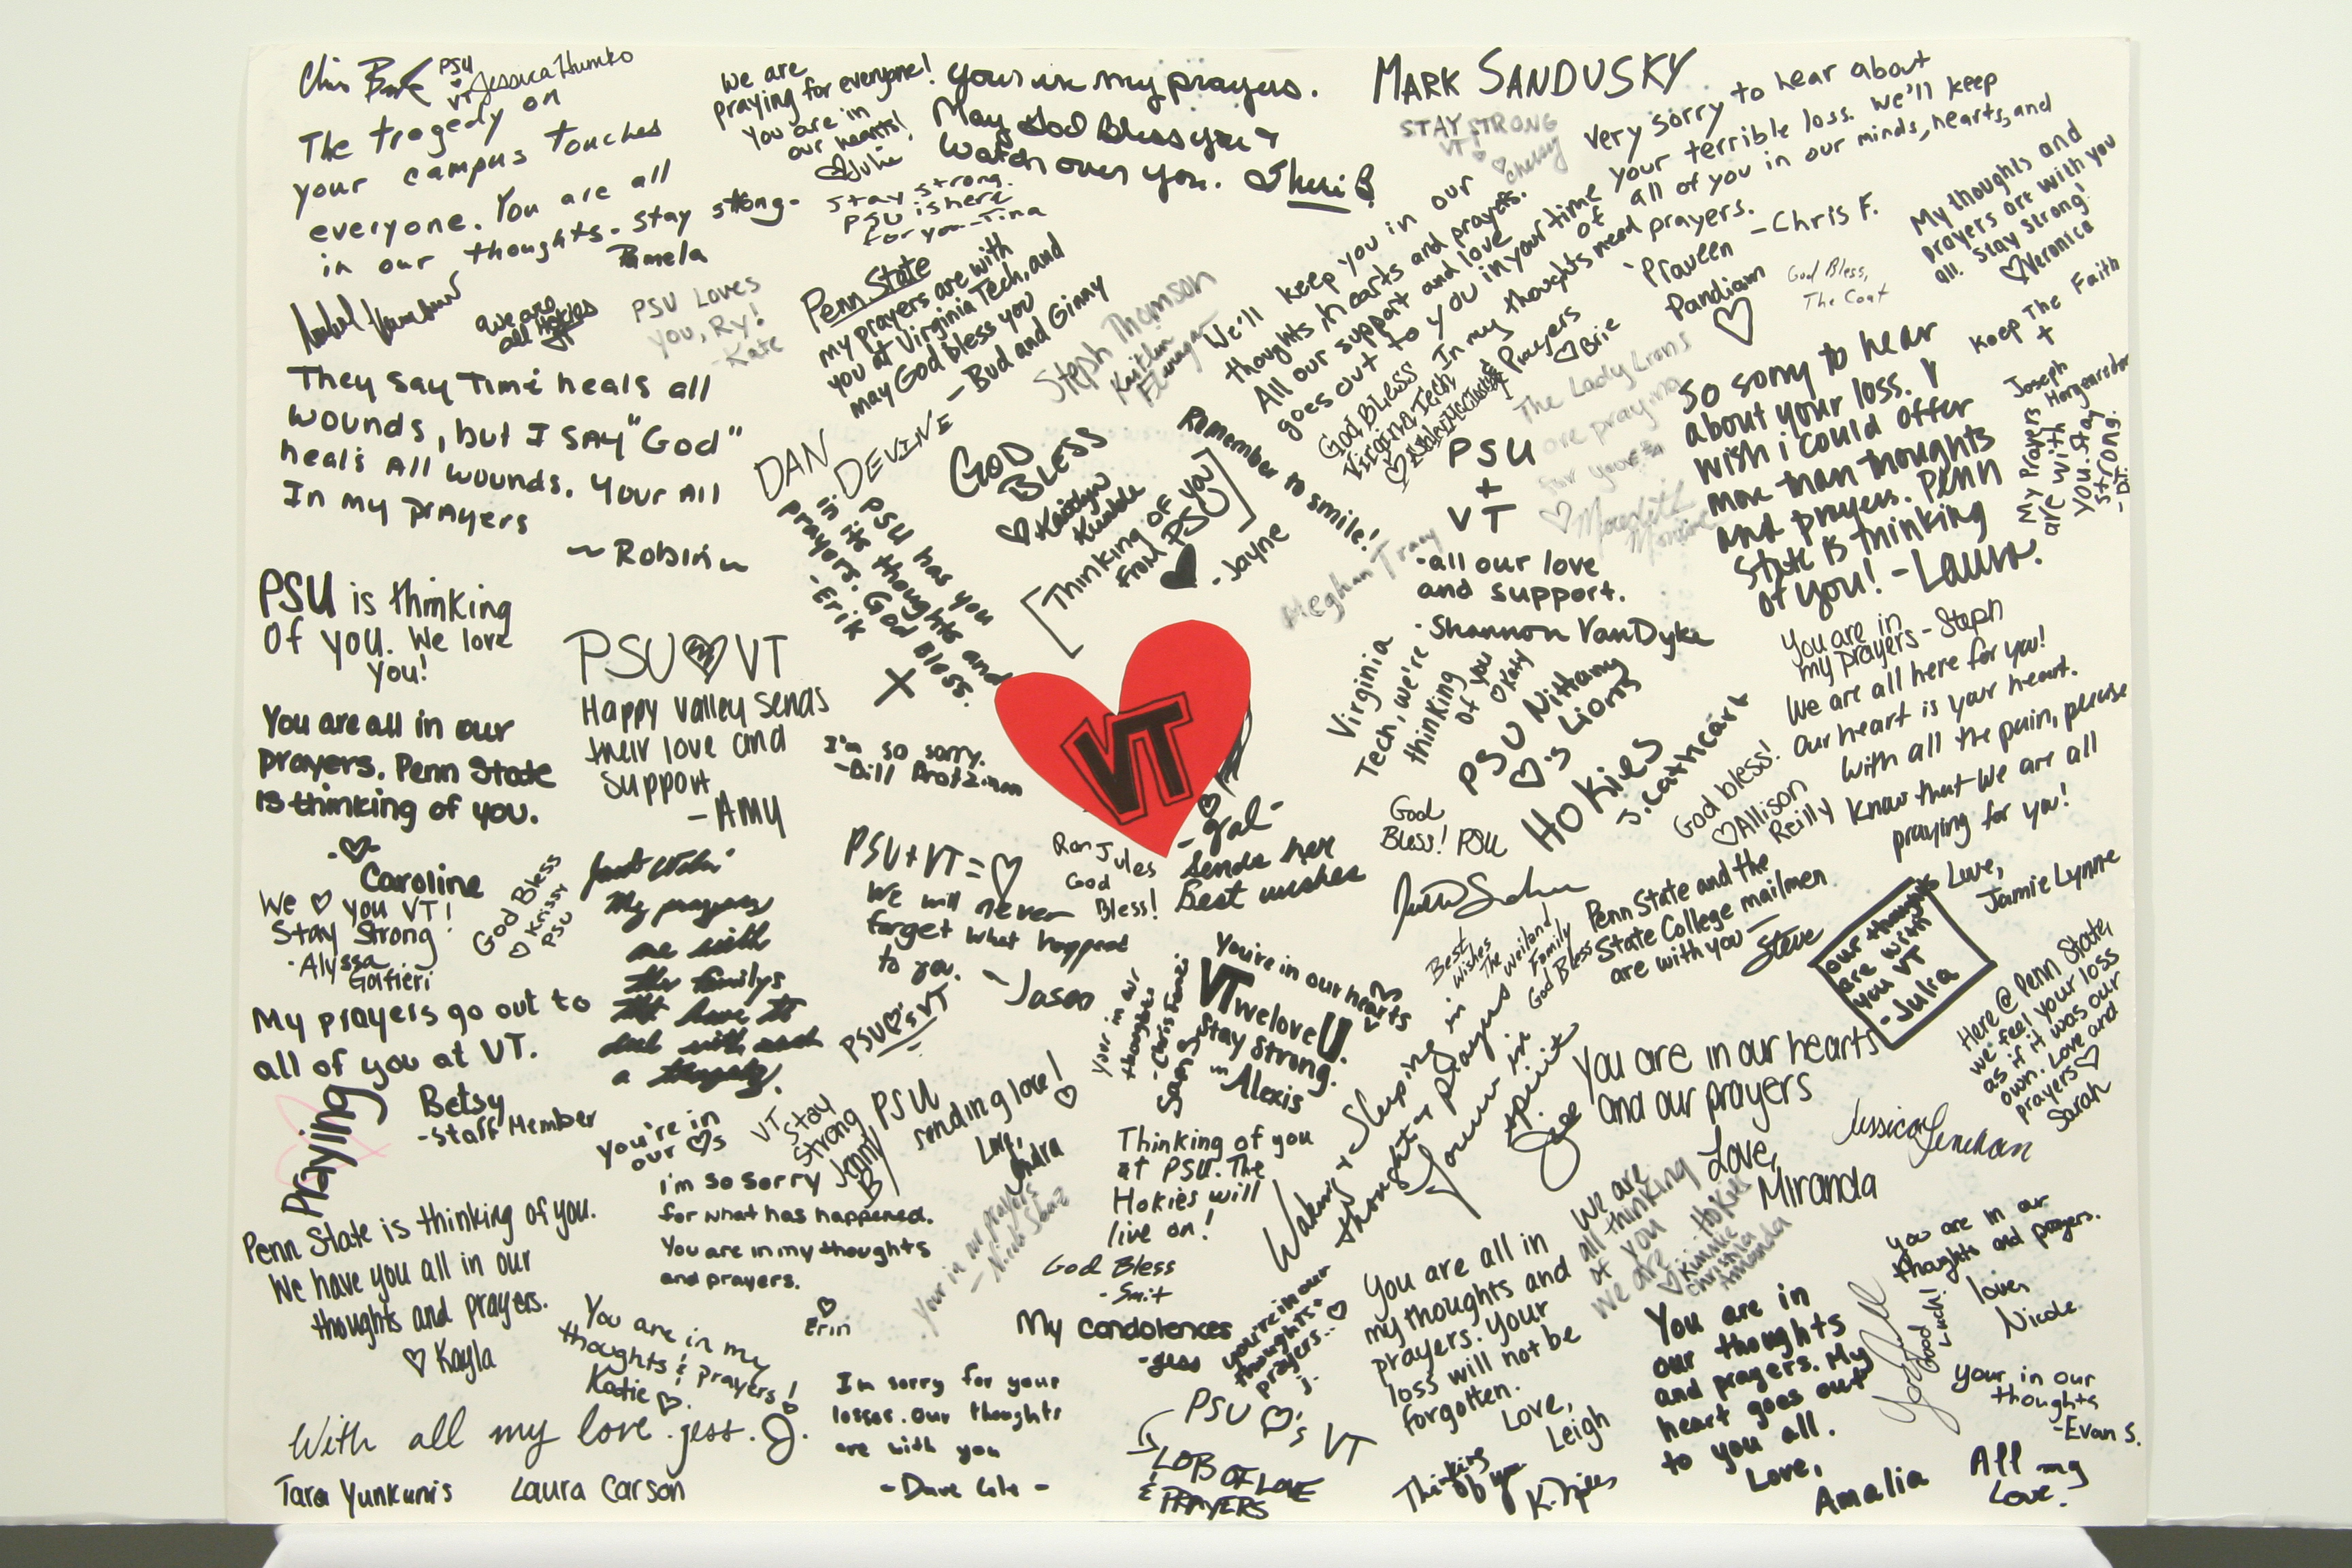 PSU
VT
Jessica Humko
The tragedy on
your campus touches
everyone. You are all
in our thoughts. Stay stong.
Pamela
We are
praying for everyone!
You are in
our hearts!
♡Julie
Your in my prayers.
May God Bless you +
watch over you. Sheri B
Stay strong.
PSU is here
for you - Tina
MARK SANDUSKY
STAY STRONG
VT ♡
♡ Chelsey
Very sorry to hear about
your terrible loss. We'll keep
all of you in our minds, hearts, and
prayers.
-Chris F.
My thoughts and
prayers are with you
all. Stay Strong!
♡Veronica
We are
all Hokies
PSU Loves
you, Ry!
-Kate
Penn State
my prayers are with
you at Virginia Tech, and
may God bless you
- Bud and Ginny
Steph Thomson
Kaitlin
Flanagan
We'll keep you in our
thoughts, hearts and prayers.
All our support and love
goes out to you in your time
of need
God Bless
Virginia Tech
In my thoughts
& Prayers
♡Brie
Praveen
Pandian
♡
God Bless,
The Coat
Keep The Faith
+
Joseph
Morgenstern
They say Time heals all
wounds, but I say "God"
heals All wounds. Your All
In my prayers
~Robin
DAN
DEVINE
PSU has you
in its thoughts and
prayers. God Bless.
-Erik
X
GOD
BLESS
♡ Kaitlyn
Kunkle
[Thinking of you
from PSU]
♥ -Jayne
Remember to smile!
Meghan Tracy
PSU
+
VT
-all our love
and support.
-Shannon VanDyke
The Lady Lions
are praying
for you
♡ Meredith
So sorry to hear
about your loss. I
wish i could offer
more than thoughts
and prayers. Penn
State is thinking
of you! -Laura.
My Prayers
are with
you. Stay
strong.
PSU is thinking
Of you. We love
you!
PSU♡VT
Happy Valley sends
their love and
support
-AMY
You are all in our
prayers. Penn State
is thinking of you.
-♡-
Caroline
I'm so sorry.
-Bill Brotzman
VT
Virginia
Tech, we're
thinking
of you
♡Katy
PSU Nittany
♡'s Lions
HOKIES
J. Cathcart
You are in
my prayers - Steph
We are all here for you!
Our heart is your heart.
God bless!
♡Allison
Reilly
With all the pain, please
know that we are all
praying for you!
Love,
Jamie Lynne
God
Bless! PSU
We ♡ you VT!
Stay Strong
-Alyssa
Galfieri
God Bless
♡ Krissy
PSU
My prayers
are with
the familys
that have to
deal with such
a tragedy.
PSU+VT=♡
We will never
forget what happened
to you.
~Jason
Ron Jules
God
Bless!
-Gal-
Sends her
Best wishes
Best
wishes
The Weiland
Family
God Bless
Penn State and the
State College mailmen
are with you -
Steve
our thoughts
are with
you VT
-Julia
Here @ Penn State,
we feel your loss
as if it was our
own. Love and
prayers ♡
Sarah
My prayers go out to
all of you at VT.
Betsy
-Staff Member
Praying
PSU♡'s VT
Your in our
thoughts
You're in our hearts
VT we love U.
Stay Strong.
~Alexis
Waking + Sleeping in
thoughts + prayers
You are in our hearts
and our prayers
Love,
Miranda
Jessica Lenihan
You're in
our ♡s
VT
Stay
Strong
Jenny
B
PSU
sending love!
♡
Love,
Thinking of you
at PSU. The
Hokies will
live on!
God Bless
-Smit
i'm so sorry
for what has happened.
You are in my thoughts
and prayers.
♡
Erin
Your in our prayers
Penn State is thinking of you.
We have you all in our
thoughts and prayers.
♡ Kayla
You are in my
thoughts & prayers!
Katie ♡
My condolences
-Jess
you're in our
thoughts +
prayers.. ♡
J.
You are all in
my thoughts and
prayers. Your
loss will not be
forgotten.
Love,
Leigh
We are
all thinking
of you
We are Hokies
♡ Kimmie
Christina
Amanda
You are in
our thoughts
and prayers. My
heart goes out
to you all.
Love,
Amalia
You are in our
thoughts and prayers.
love,
Nicole
Good
Luck!
Your in our
thoughts
-Evan S.
With all my love. Jess. J.
Tara Yunkunis
Laura Carson
Im sorry for your
losses. Our thoughts
are with you
PSU ♡'s VT
LOB OF LOVE
& PRAYERS
Thinking
of you
All my
Love.